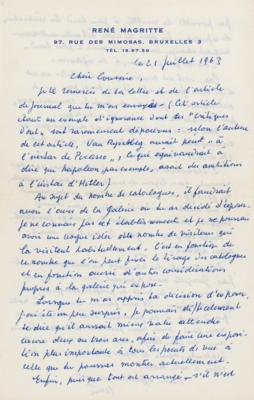 RENÉ MAGRITTE
97, RUE DES MIMOSAS, BRUXELLES 3
TÉL. 15.97.30
le 21 juillet 1963
Je te remercie de ta lettre et de l'article
de journal que tu m'as envoyés (cet article
étant un exemple d'ignorance dont les "critiques
d'art" sont rarement dépourvus : selon l'auteur
de cet article, Van
l'instar de Picasso, ce qui équivaudrait à
dire que Napoléon par exemple, avait des ambitions
à l'instar d'Hitler)
Au sujet du nombre de catalogues, il faudrait
avoir l'avis de la Galerie où tu as décidé d'exposer.
Je ne connais pas cet établissement et je ne pourrais
avoir une idée du nombre de visiteurs qui
la visitent habituellement. C'est en fonction de
ce nombre que l'on peut fixer le tirage des catalogues
et en fonction encore d'autres considérations
propres à la galerie qui expose.
Lorsque tu m'as appris ta décision d'exposer,
j'ai été un peu surpris, je pensais
te dire qu'il aurait mieux valu attendre
encore deux ou trois ans, afin de faire une exposi-
tion plus importante à tous les points de vue à
celle que tu pourras montrer actuellement.
Enfin, puisque tout est arrangé, s'il n'est